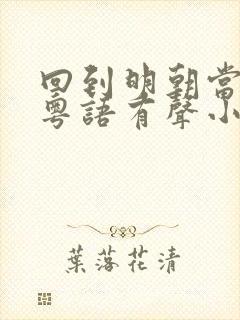 回到明朝當
粵語有聲小
葉落花清